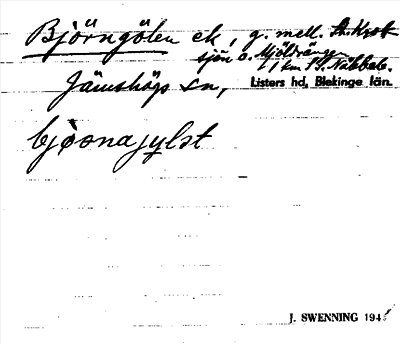 Björngölen ek, g. mell. St. Krok-
sjön o. Mjöldrängen
1 km
Jämshögs sn, Listers hd, Blekinge län.
J. SWENNING 194